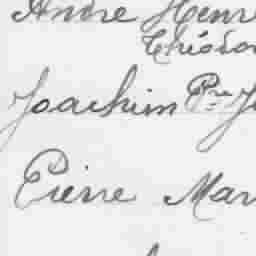 André Henr
Théodo
Joachim Pre J
Pierre Mar